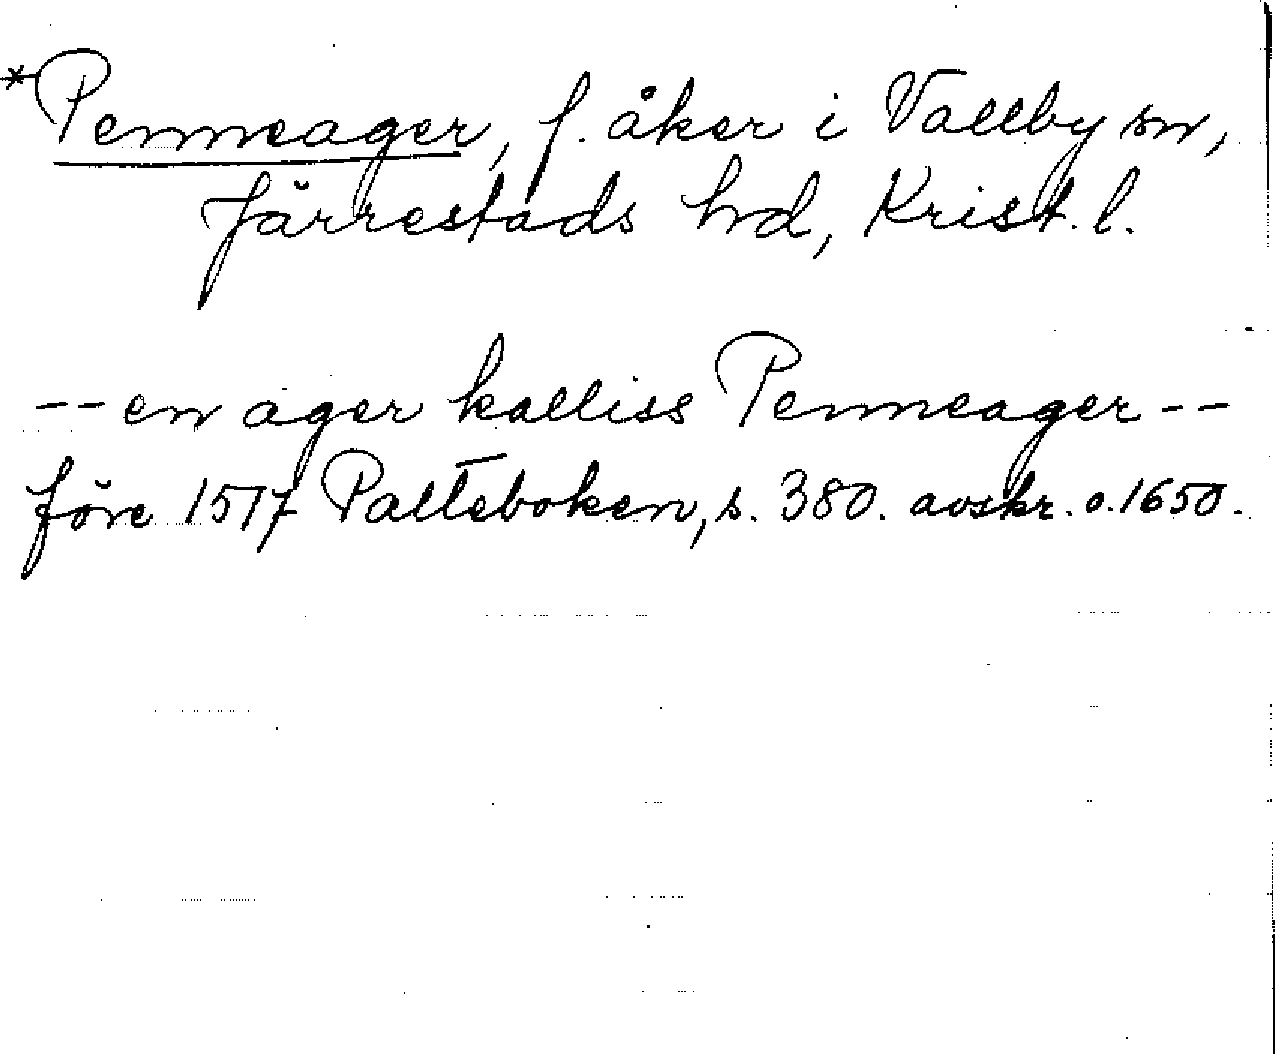 *Penneager, f. åker i Vallby sn,
Järrestads hd, Krist. l.
-- en ager kalliss Penneager --
före 1517 Palteboken, s. 380. avskr. o. 1650.